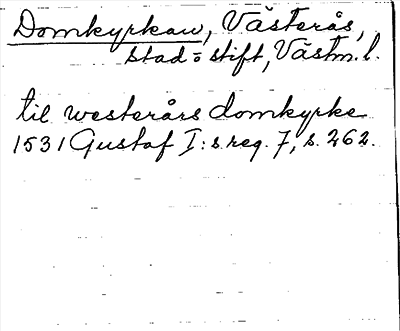 Domkyrkan, Västerås,
stad o stift, Västm. l.
til westerårs domkyrke
1531 Gustaf I:s reg. 7, s. 262.